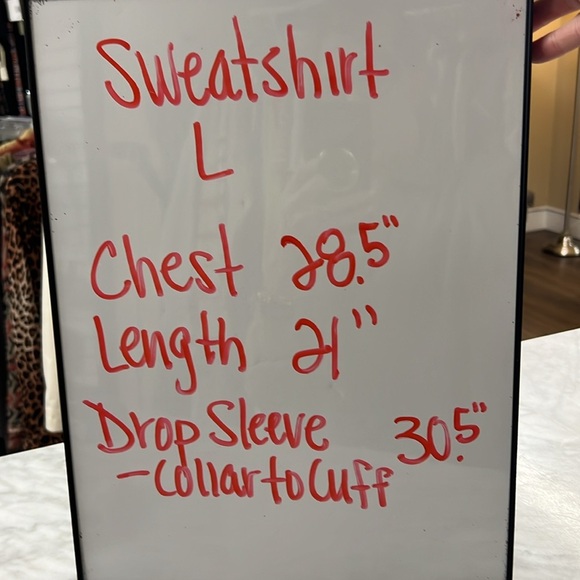 Sweatshirt
L
Chest 28.5"
Length 21"
Drop Sleeve 30.5"
-Collar to Cuff